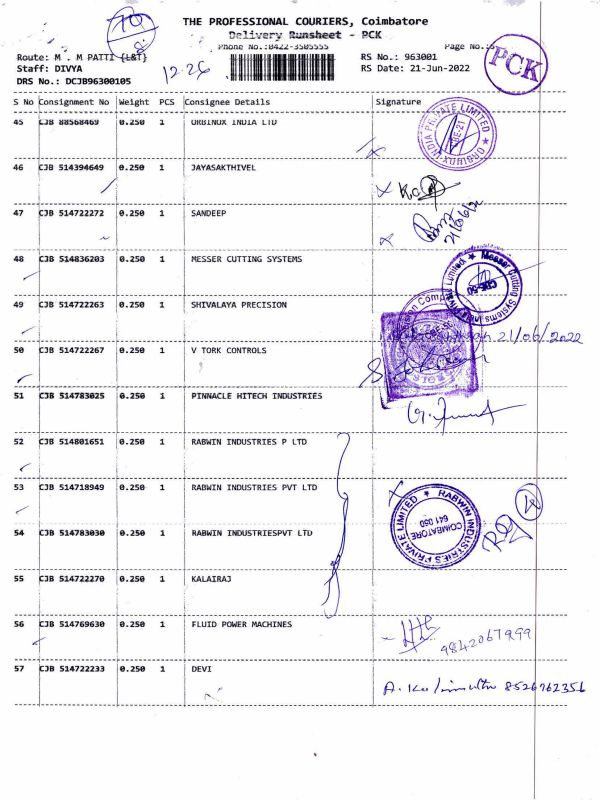 THE PROFESSIONAL COURIERS, Coimbatore
Delivery Runsheet - PCK
Phone No.:0422-3505555 Page No.:
Route: M . M PATTI {L&T} RS No.: 963001
Staff: DIVYA 12-26 RS Date: 21-Jun-2022
DRS No.: DCJB96300105
70
PCK
S No Consignment No Weight PCS Consignee Details Signature
45 CJB 88568469 0.250 1 ORBINOX INDIA LTD
ORBINOX INDIA PRIVATE LIMITED
46 CJB 514394649 0.250 1 JAYASAKTHIVEL
47 CJB 514722272 0.250 1 SANDEEP
48 CJB 514836203 0.250 1 MESSER CUTTING SYSTEMS
Messer Cutting Systems India Private Limited
49 CJB 514722263 0.250 1 SHIVALAYA PRECISION
21/06/2022
50 CJB 514722267 0.250 1 V TORK CONTROLS
51 CJB 514783025 0.250 1 PINNACLE HITECH INDUSTRIES
52 CJB 514801651 0.250 1 RABWIN INDUSTRIES P LTD
53 CJB 514718949 0.250 1 RABWIN INDUSTRIES PVT LTD
RABWIN INDUSTRIES PRIVATE LIMITED
COIMBATORE
641 050
54 CJB 514783030 0.250 1 RABWIN INDUSTRIESPVT LTD
55 CJB 514722270 0.250 1 KALAIRAJ
56 CJB 514769630 0.250 1 FLUID POWER MACHINES
9842067999
57 CJB 514722233 0.250 1 DEVI
8526762356